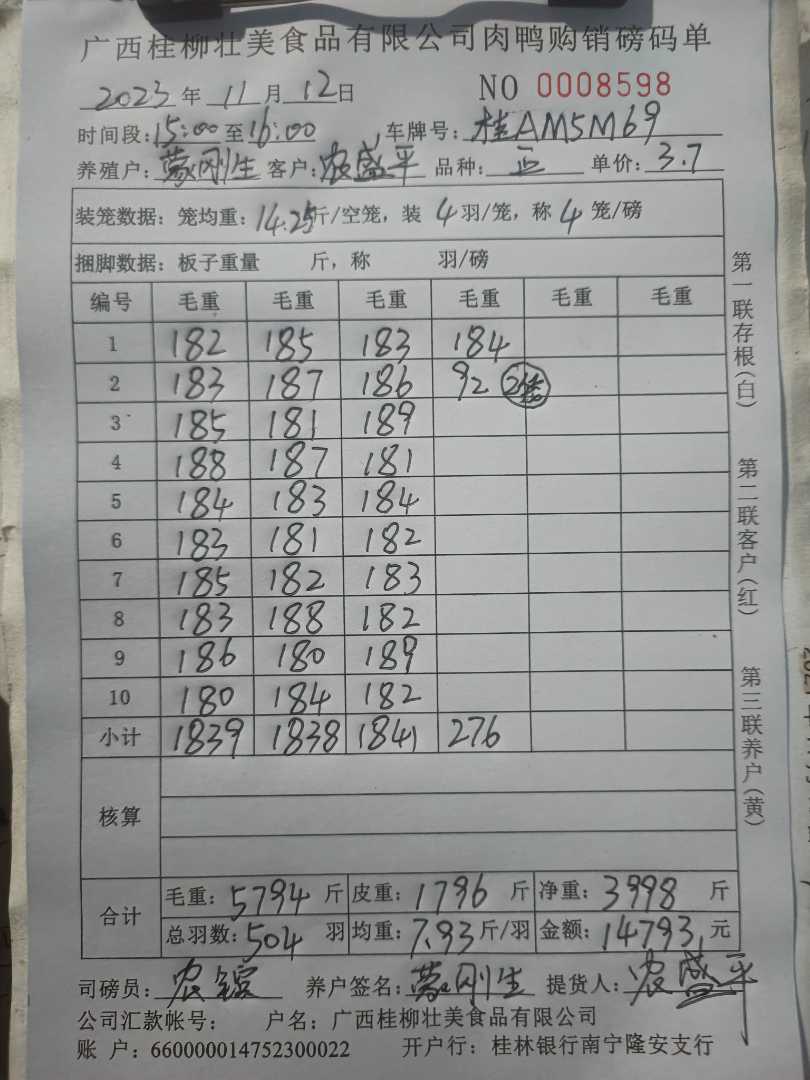 广西桂柳壮美食品有限公司肉鸭购销磅码单
2023年 11月 12日 NO 0008598
时间段:15:00至16:00 车牌号:桂AM5M69
养殖户:蒙刚生 客户:农盛平 品种:正 单价:3.7
装笼数据:笼均重:14.25斤/空笼,装 4羽/笼,称 4 笼/磅
捆脚数据:板子重量 斤,称 羽/磅
编号 毛重 毛重 毛重 毛重 毛重 毛重
1 182 185 183 184
2 183 187 186 92
3 185 181 189
4 188 187 181
5 184 183 184
6 183 181 182
7 185 182 183
8 183 188 182
9 186 180 189
10 180 184 182
小计 1839 1838 1841 276
核算
合计
毛重:5794 斤 皮重:1796 斤 净重:3998 斤
总羽数:504 羽 均重:7.93斤/羽 金额:14793 元
司磅员:农 养户签名:蒙刚生 提货人:农盛平
公司汇款帐号: 户名:广西桂柳壮美食品有限公司
账 户:660000014752300022 开户行:桂林银行南宁隆安支行
第一联存根(白) 第二联客户(红) 第三联养户(黄)